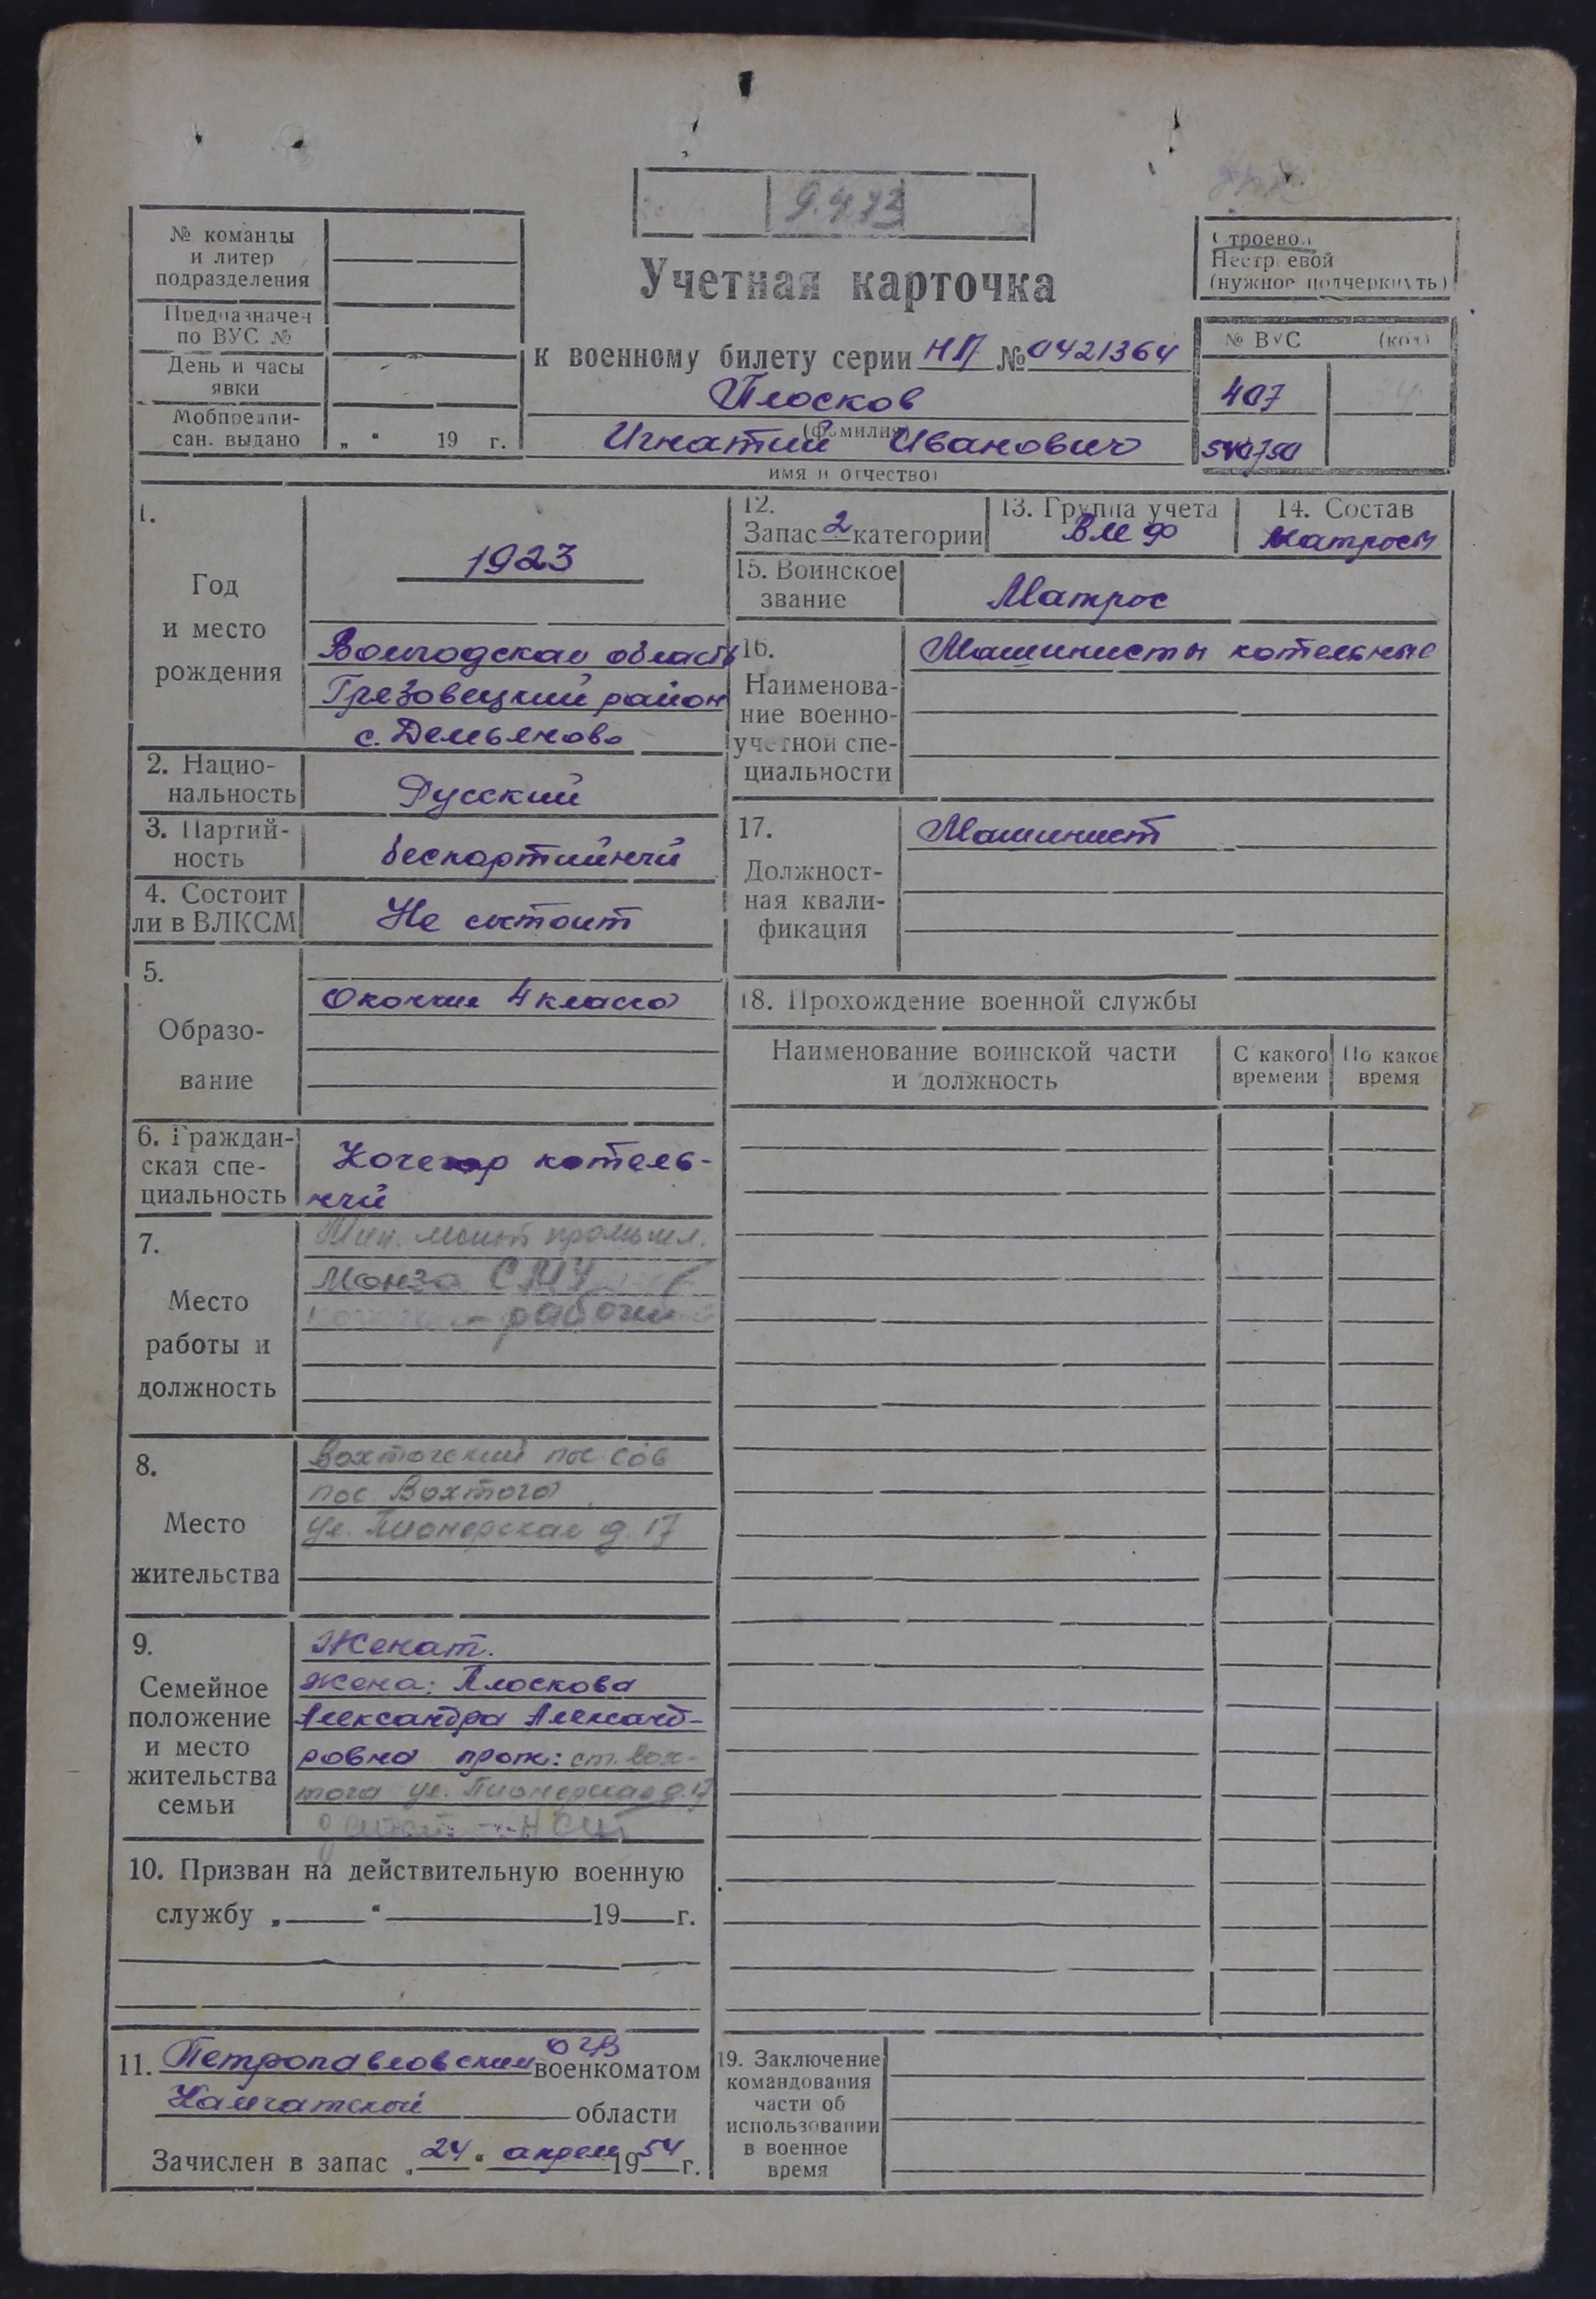 9.4.73
№ команды
и литер
подразделения
Предназначен
по ВУС №
День и часы
явки
Мобпредпи-
сан. выдано
„ “ 19 г.
Учетная карточка
к военному билету серии НП № 0421364
Плосков
(фамилия)
Игнатий Иванович
имя и отчество)
Строевой
Нестроевой
(нужное подчеркнуть)
№ ВУС (код)
407
1.
Год
и место
рождения
1923
Вологодская область
Грязовецкий район
с. Демьяново
2. Нацио-
нальность
Русский
3. Партий-
ность
беспартийный
4. Состоит
ли в ВЛКСМ
Не состоит
5.
Образо-
вание
Окончил 4 класса
6. Граждан-
ская спе-
циальность
Кочегар котель-
ный
7.
Место
работы и
должность
промышл.
Монза СМУ
рабочий
8.
Место
жительства
Вохтогский пос сов
пос Вохтога
ул. Пионерская д. 17
9.
Семейное
положение
и место
жительства
семьи
Женат.
Жена: Плоскова
Александра Александ-
ровна прож: ст. Вох-
тога ул. Пионерская д. 17
10. Призван на действительную военную
службу „ “ 19 г.
11. Петропавловским ОГВ военкоматом
Камчатской области
Зачислен в запас „24“ апреля 1954 г.
12.
Запас 2 категории
13. Группа учета
ВМФ
14. Состав
Матросы
15. Воинское
звание
Матрос
16.
Наименова-
ние военно-
учетной спе-
циальности
Машинисты котельные
17.
Должност-
ная квали-
фикация
Машинист
18. Прохождение военной службы
Наименование воинской части
и должность
С какого
времени
По какое
время
19. Заключение
командования
части об
использовании
в военное
время